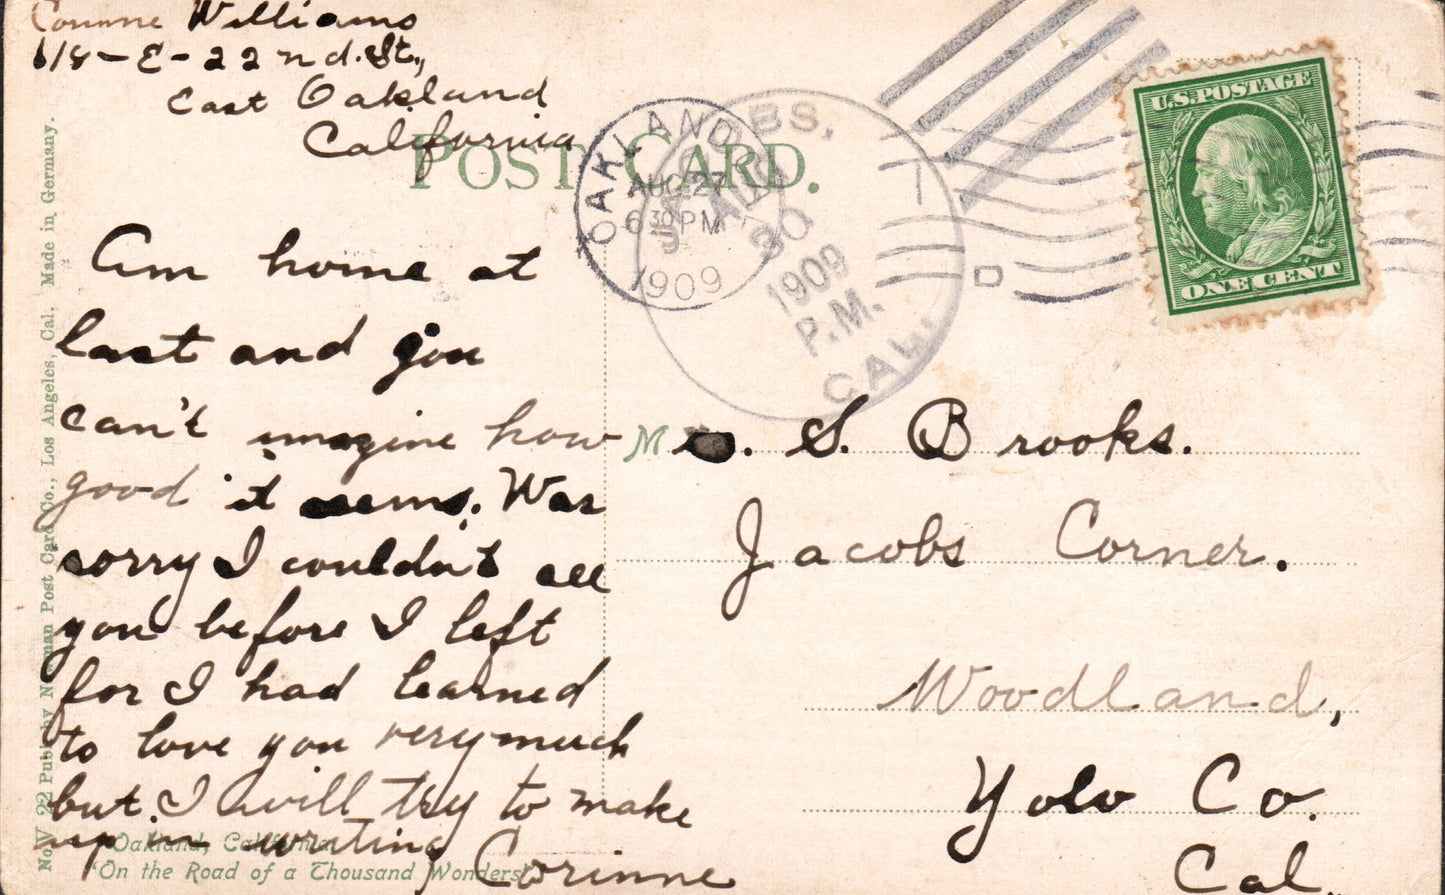 Corinne Williams
618-E-22nd. St.,
East Oakland
California
POST CARD.
OAKLAND
AUG 27
6 30 PM
1909
JACOBS,
AUG
30
1909
P.M.
CAL.
U.S. POSTAGE
ONE CENT
Am home at
last and you
can't imagine how
good it seems. Was
sorry I couldn't see
you before I left
for I had learned
to love you very much
but I will try to make
up in writing
Corinne
M S. Brooks.
Jacobs Corner.
Woodland,
Yolo Co.
Cal.
No. V 22 Pub. by Newman Post Card Co., Los Angeles, Cal. Made in Germany.
Oakland, California
"On the Road of a Thousand Wonders"